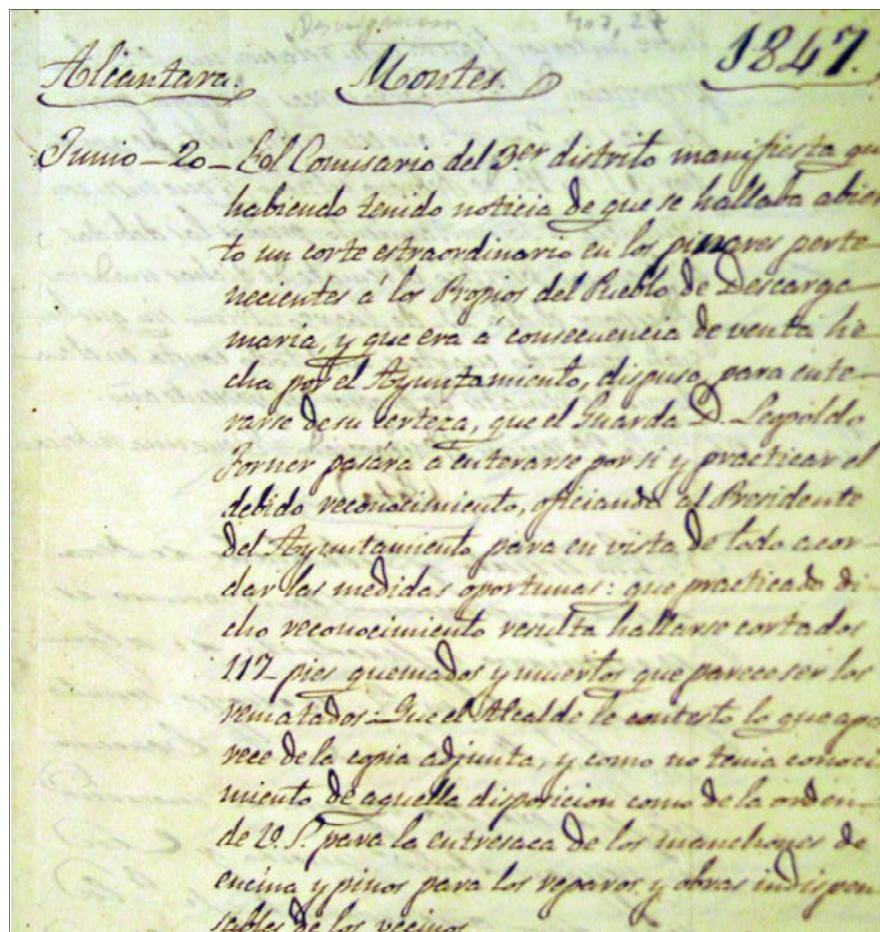 Descargamaria 407, 27
Alcantara. Montes. 1847.
Junio - 20 - El Comisario del 3er distrito manifiesta que
habiendo tenido noticia de que se hallaba abier
to un corte estraordinario en los pinares perte-
necientes á los Propios del Pueblo de Descarga
maria, y que era á consecuencia de venta he-
cha por el Ayuntamiento, dispuso, para ente-
rarse de su certeza, que el Guarda D. Leopoldo
Forner pasára á enterarse por si y practicar el
debido reconocimiento, oficiando al Presidente
del Ayuntamiento para en vista de todo acor-
dar las medidas oportunas: que practicado di-
cho reconocimiento resulta hallarse cortados
117 pies quemados y muertos que parece ser los
rematados: Que el Alcalde le contestó lo que apa
rece de la copia adjunta, y como no tenia conoci
miento de aquella disposicion como de la orden
de para la entresaca de los manchones de
encina y pinos para los reparos y obras indispen
sables de los vecinos